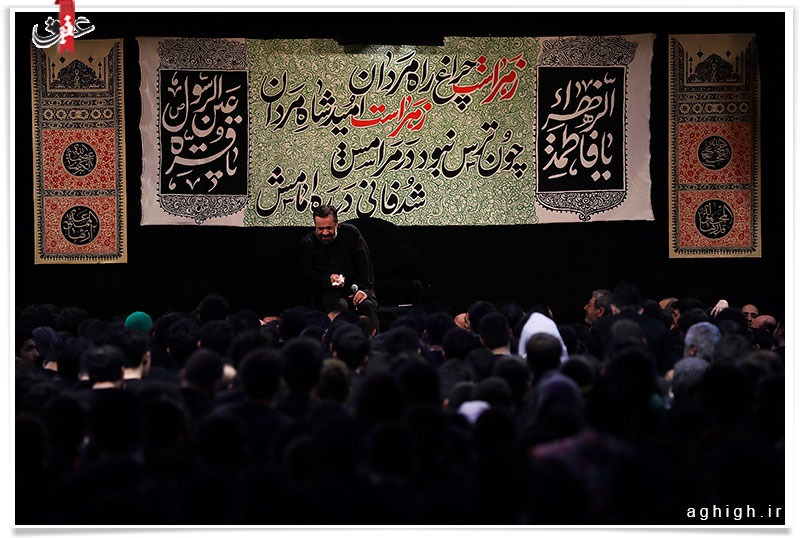 عقیق
زهراست چراغ راه مردان
زهراست امید شاه مردان
چون ترس نبود در مرامش
شد فانی در ره امامش
یا فاطمة الزهراء
یا قرة عین الرسول
aghigh.ir